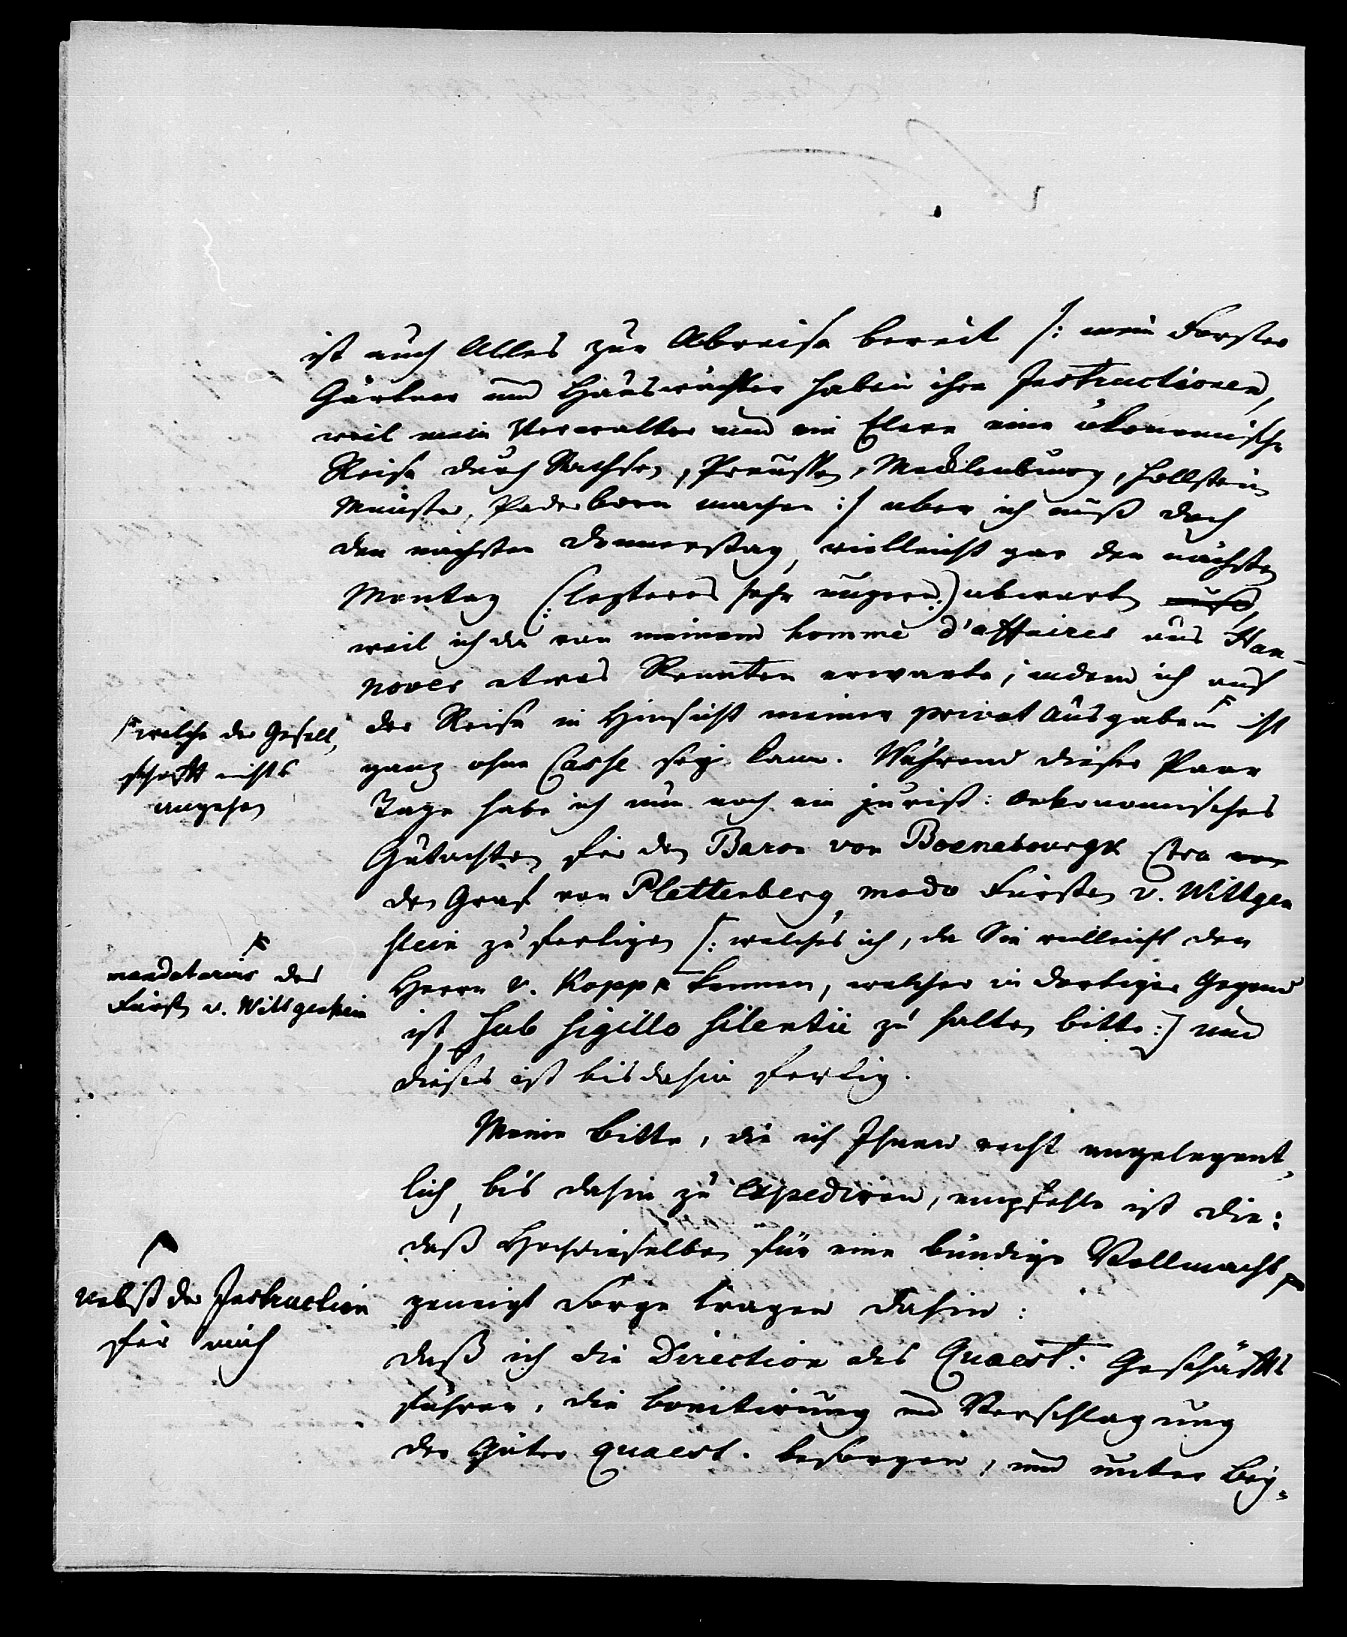 ist auch Alles zur Abreise bereit /: mein Forster
Gärtner und Hauswächter haben ihre Instructionen,
weil mein Verwalter und ein Eleve eine ökonomische
Reise durch Sachsen, Preussen, Mecklenburg, Hollstein
Münster, Paderborn machen :/ aber ich muß doch
den nächsten Donnerstag, vielleicht gar den nächsten
Montag (: lezteres sehr ungern :) abwarten
weil ich da von meinem homme d'affaires aus Han-
nover etwas Renten erwarte; indem ich auf
der Reise in Hinsicht meiner privat Ausgaben ⌈ nicht
⌈ welche der Gesell,
schafft nichts
angehen
ganz ohne Casse seyn kann. Während dieser Paar
Tage habe ich nun noch ein jurist: oekonomisches
Gutachten für den Baron von Boenebourgk ctra
den Graf von Plettenberg, modo Fürsten v. Wittgen
stein zu fertigen /: welches ich, da Sie vielleicht den
Herrn v. Kopp ⌈ kennen, welcher in dortiger Gegend
⌈ mandatarius des
Fürst v. Wittgenstein
ist sub sigillo silentii zu halten bitte :/ und
dieses ist bis dahin fertig.
Meine Bitte, die ich Ihnen recht angelegent,
lich, bis dahin zu expediren, empfehle ist die:
daß Hochdieselben für eine bündige Vollmacht ⌈
⌈ nebst der Instruction
für mich
geneigt Sorge tragen dahin:
daß ich die Direction des Quaest: Geschäfts
führen, die Bonitirung und Verschlagung
der Güter quaest. besorgen, und unter Bey-